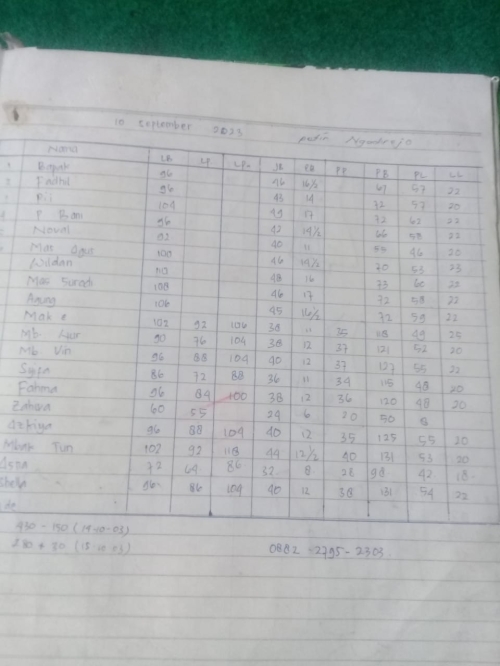 10 September 2023 putih Ngadirejo
Nama LB LP LPi JB PB PP PB PL LL
Bapak 96 46 16 1/2 67 57 22
Fadhil 96 43 14 72 57 20
104 49 17 72 62 22
P 96 42 14 1/2 66 58 22
Noval 92 40 11 55 46 20
Mas Agus 100 46 14 1/2 70 53 23
Wildan 110 48 16 73 60 22
Mas Suradi 108 46 17 72 58 22
Agung 106 45 16 1/2 72 59 22
Mak 102 92 106 38 11 35 118 49 20
Mb. Nur 90 76 104 38 12 37 121 52 20
Mb Vin 96 88 104 40 12 37 127 55 22
Syifa 86 72 88 36 11 34 115 48 20
Fatma 96 84 100 38 12 36 120 48 20
Zahira 60 55 24 6 20 50 8
Azkiya 96 88 104 40 12 35 125 55 20
Mbak Tun 102 92 118 44 12 1/2 40 131 53 20
72 64 86 32 8 28 98 42 18
96 86 104 40 12 38 131 54 22
430 - 150 (14-10-03)
280 + 30 (15-10-03) 0882 - 2795 - 2303